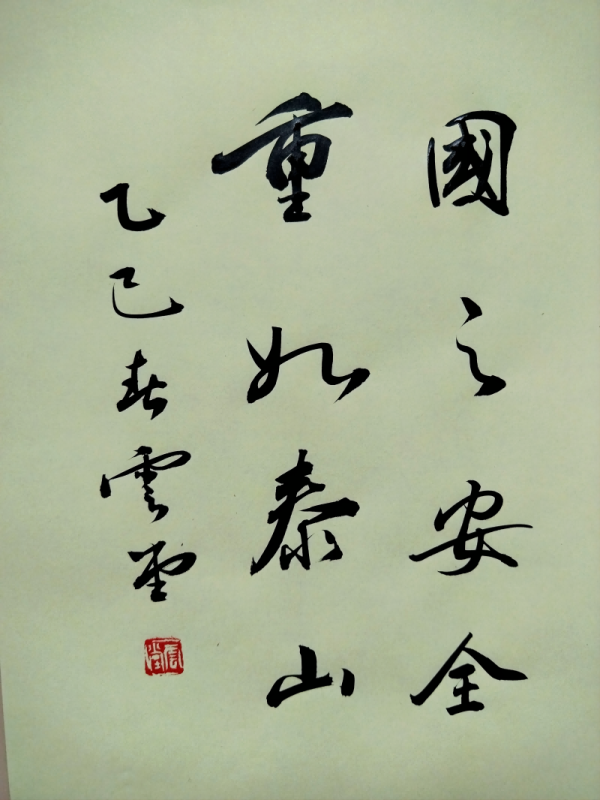 國之安全
重如泰山
乙巳春雲堂